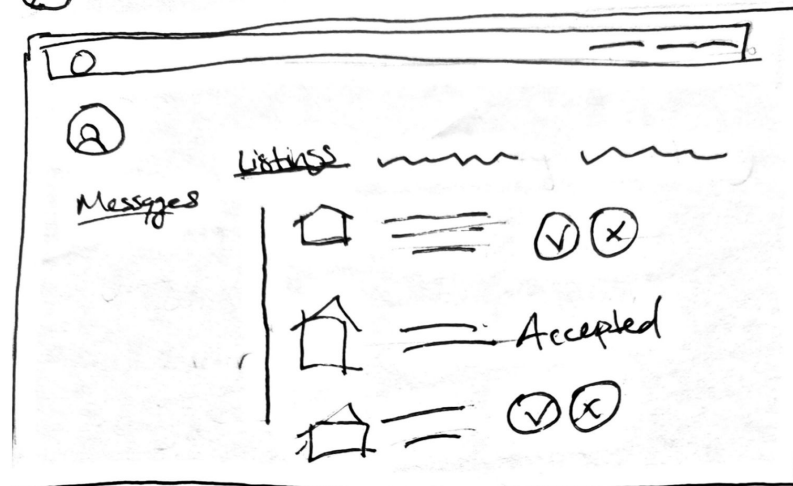 Listings
Messages
Accepted